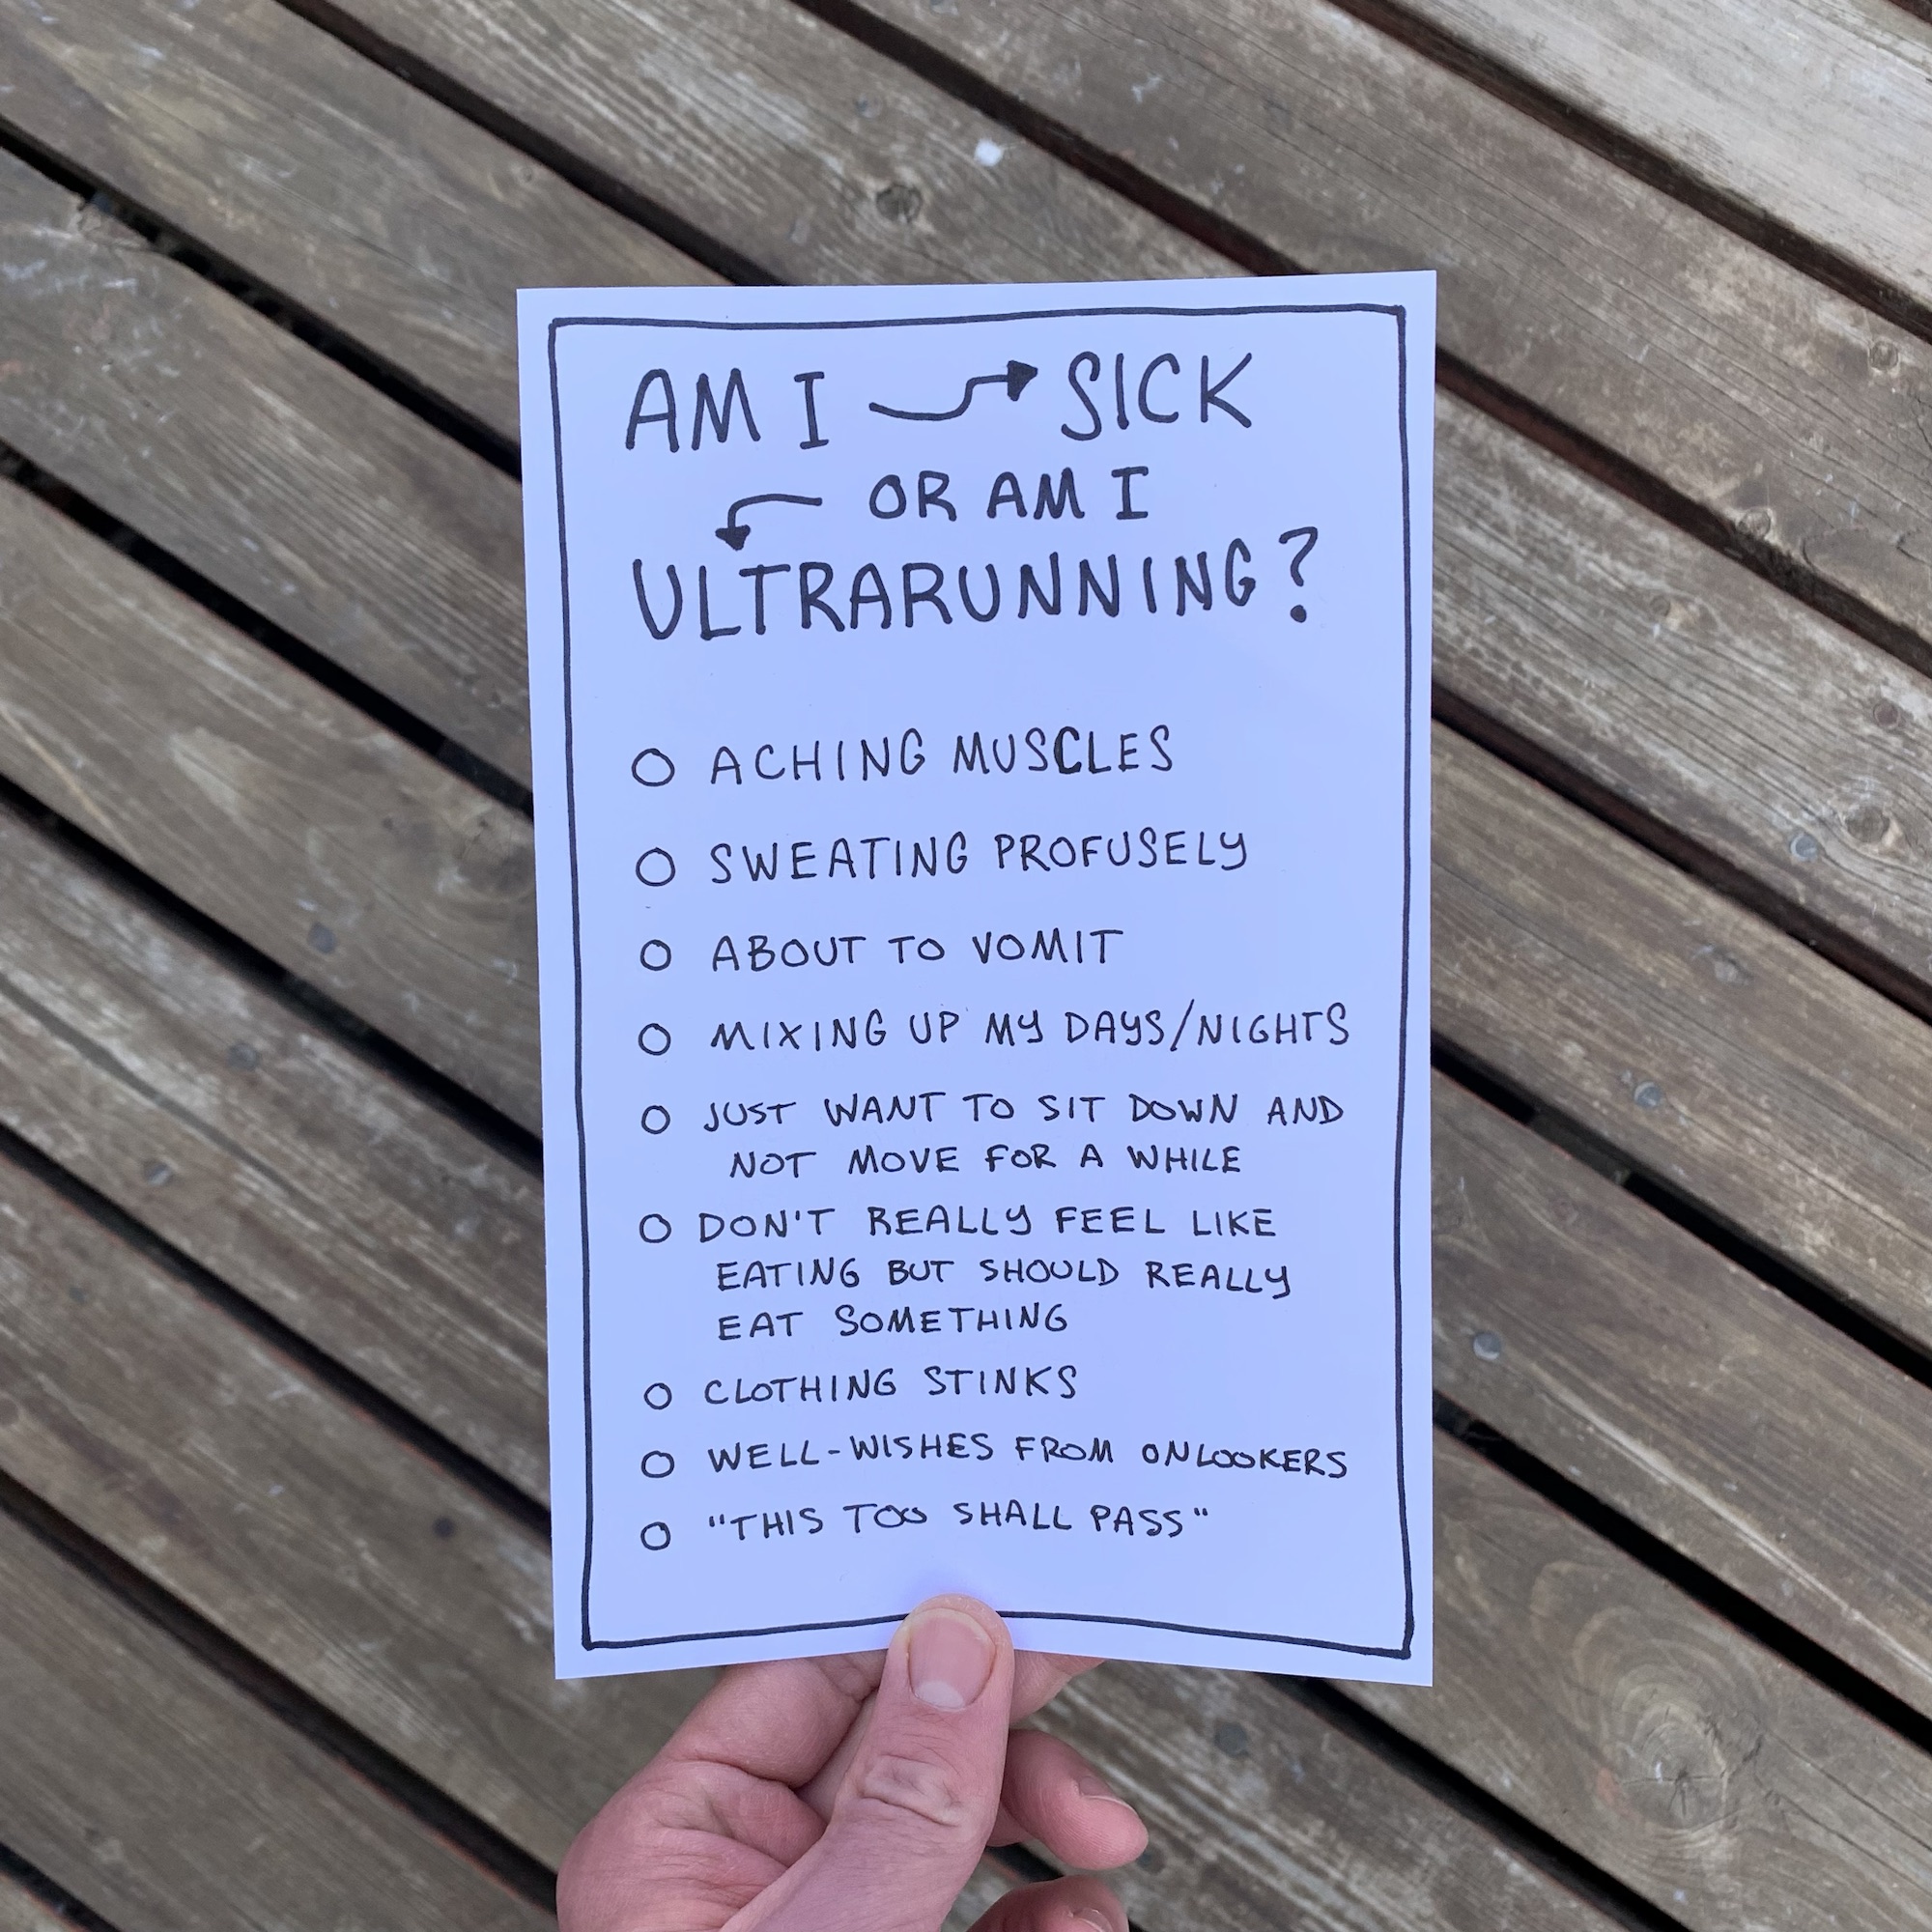 AM I SICK
OR AM I
ULTRARUNNING?
ACHING MUSCLES
SWEATING PROFUSELY
ABOUT TO VOMIT
MIXING UP MY DAYS/NIGHTS
JUST WANT TO SIT DOWN AND
NOT MOVE FOR A WHILE
DON'T REALLY FEEL LIKE
EATING BUT SHOULD REALLY
EAT SOMETHING
CLOTHING STINKS
WELL-WISHES FROM ONLOOKERS
"THIS TOO SHALL PASS"